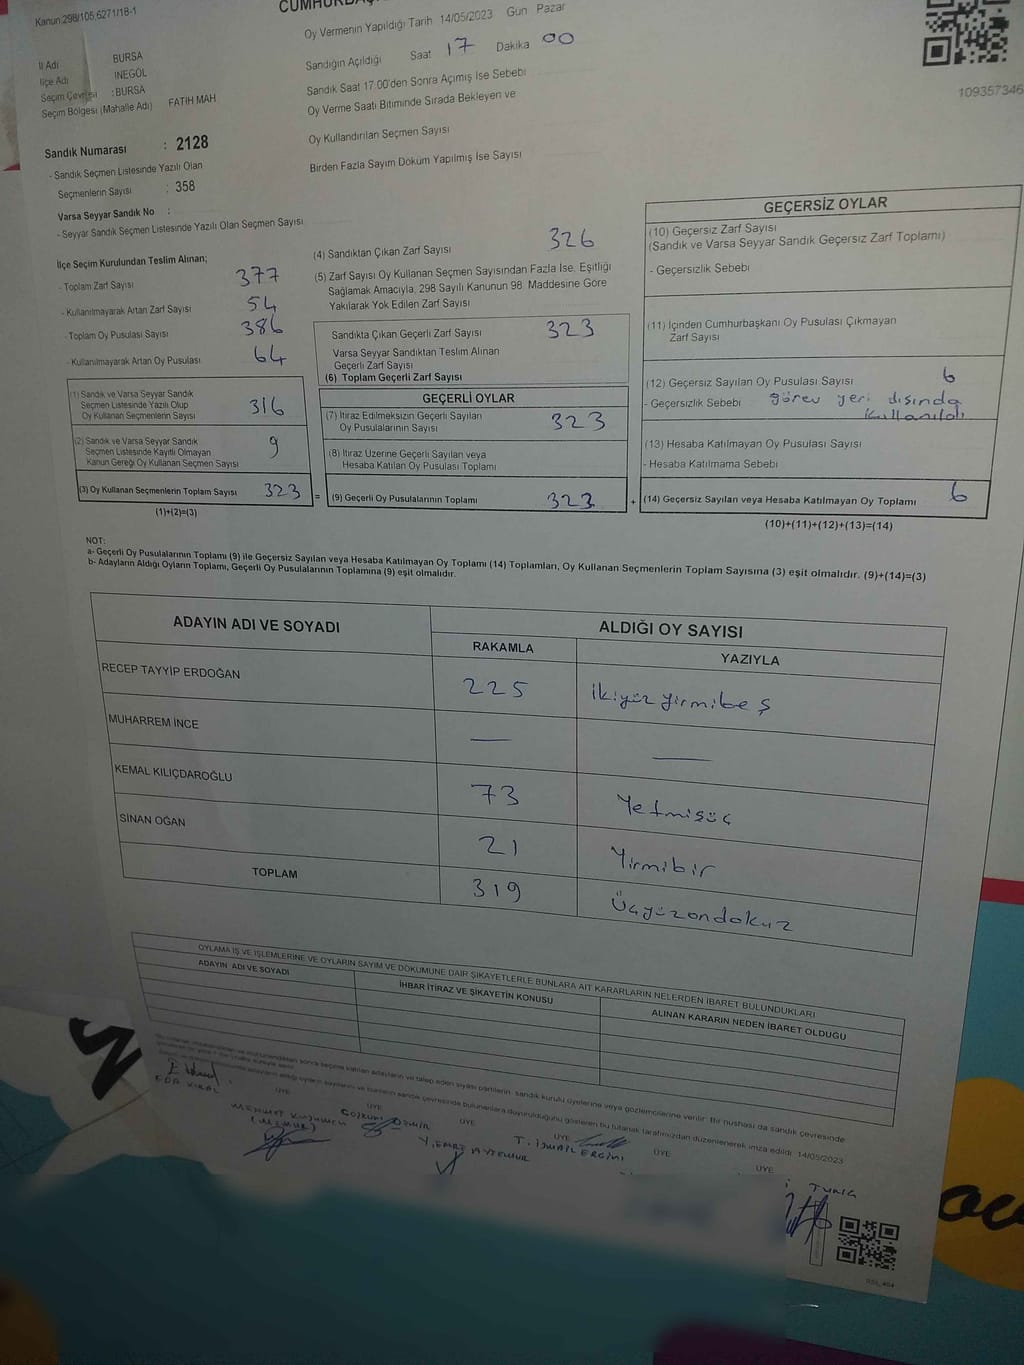 Kanun:298/105,6271/18-1
Oy Vermenin Yapıldığı Tarih 14/05/2023 Gün Pazar
İl Adı BURSA
İlçe Adı INEGÖL
Seçim Çevresi :BURSA
Seçim Bölgesi (Mahalle Adı) FATİH MAH
Sandığın Açıldığı Saat 17 Dakika 00
Sandık Saat 17:00'den Sonra Açımış İse Sebebi
Oy Verme Saati Bitiminde Sırada Bekleyen ve
Oy Kullandırılan Seçmen Sayısı
Birden Fazla Sayım Döküm Yapılmış İse Sayısı
109357346
Sandık Numarası : 2128
- Sandık Seçmen Listesinde Yazılı Olan
Seçmenlerin Sayısı : 358
Varsa Seyyar Sandık No :
- Seyyar Sandık Seçmen Listesinde Yazılı Olan Seçmen Sayısı
İlçe Seçim Kurulundan Teslim Alınan;
- Toplam Zarf Sayısı 377
- Kullanılmayarak Artan Zarf Sayısı 54
- Toplam Oy Pusulası Sayısı 386
- Kullanılmayarak Artan Oy Pusulası 64
(1) Sandık ve Varsa Seyyar Sandık
Seçmen Listesinde Yazılı Olup
Oy Kullanan Seçmenlerin Sayısı 316
(2) Sandık ve Varsa Seyyar Sandık
Seçmen Listesinde Kayıtlı Olmayan
Kanun Gereği Oy Kullanan Seçmen Sayısı 9
(3) Oy Kullanan Seçmenlerin Toplam Sayısı 323
(1)+(2)=(3)
(4) Sandıktan Çıkan Zarf Sayısı 326
(5) Zarf Sayısı Oy Kullanan Seçmen Sayısından Fazla İse, Eşitliği
Sağlamak Amacıyla, 298 Sayılı Kanunun 98. Maddesine Göre
Yakılarak Yok Edilen Zarf Sayısı
Sandıkta Çıkan Geçerli Zarf Sayısı 323
Varsa Seyyar Sandıktan Teslim Alınan
Geçerli Zarf Sayısı
(6) Toplam Geçerli Zarf Sayısı
GEÇERLİ OYLAR
(7) İtiraz Edilmeksizin Geçerli Sayılan
Oy Pusulalarının Sayısı 323
(8) İtiraz Üzerine Geçerli Sayılan veya
Hesaba Katılan Oy Pusulası Toplamı
= (9) Geçerli Oy Pusulalarının Toplamı 323
GEÇERSİZ OYLAR
(10) Geçersiz Zarf Sayısı
(Sandık ve Varsa Seyyar Sandık Geçersiz Zarf Toplamı)
- Geçersizlik Sebebi
(11) İçinden Cumhurbaşkanı Oy Pusulası Çıkmayan
Zarf Sayısı
(12) Geçersiz Sayılan Oy Pusulası Sayısı 6
- Geçersizlik Sebebi görev yeri dışında
kullanıldı
(13) Hesaba Katılmayan Oy Pusulası Sayısı
- Hesaba Katılmama Sebebi
+ (14) Geçersiz Sayılan veya Hesaba Katılmayan Oy Toplamı 6
(10)+(11)+(12)+(13)=(14)
NOT:
a- Geçerli Oy Pusulalarının Toplamı (9) ile Geçersiz Sayılan veya Hesaba Katılmayan Oy Toplamı (14) Toplamları, Oy Kullanan Seçmenlerin Toplam Sayısına (3) eşit olmalıdır. (9)+(14)=(3)
b- Adayların Aldığı Oyların Toplamı, Geçerli Oy Pusulalarının Toplamına (9) eşit olmalıdır.
ADAYIN ADI VE SOYADI ALDIĞI OY SAYISI
RAKAMLA YAZIYLA
RECEP TAYYİP ERDOĞAN 225 İkiyüz yirmibeş
MUHARREM İNCE — —
KEMAL KILIÇDAROĞLU 73 Yetmişüç
SİNAN OĞAN 21 Yirmibir
TOPLAM 319 Üçyüzondokuz
OYLAMA İŞ VE İŞLEMLERİNE VE OYLARIN SAYIM VE DÖKÜMÜNE DAİR ŞİKAYETLERLE BUNLARA AİT KARARLARIN NELERDEN İBARET BULUNDUKLARI
ADAYIN ADI VE SOYADI İHBAR İTİRAZ VE ŞİKAYETİN KONUSU ALINAN KARARIN NEDEN İBARET OLDUĞU
sonra seçime katılan adayların ve talep eden siyasi partilerin sandık kurulu üyelerine veya gözlemcilerine verilir. Bir nüshası da sandık çevresinde
bulunanlara duyurulduğunu gösteren bu tutanak tarafımızdan düzenlenerek imza edildi. 14/05/2023
ÜYE ÜYE ÜYE ÜYE ÜYE
EDA KIRAL
MEHMET
(MEMUR)
COŞKUN DEMİR
Y. EMRE AYTEMUR
T. İSMAİL ERGİNİ
TUNA